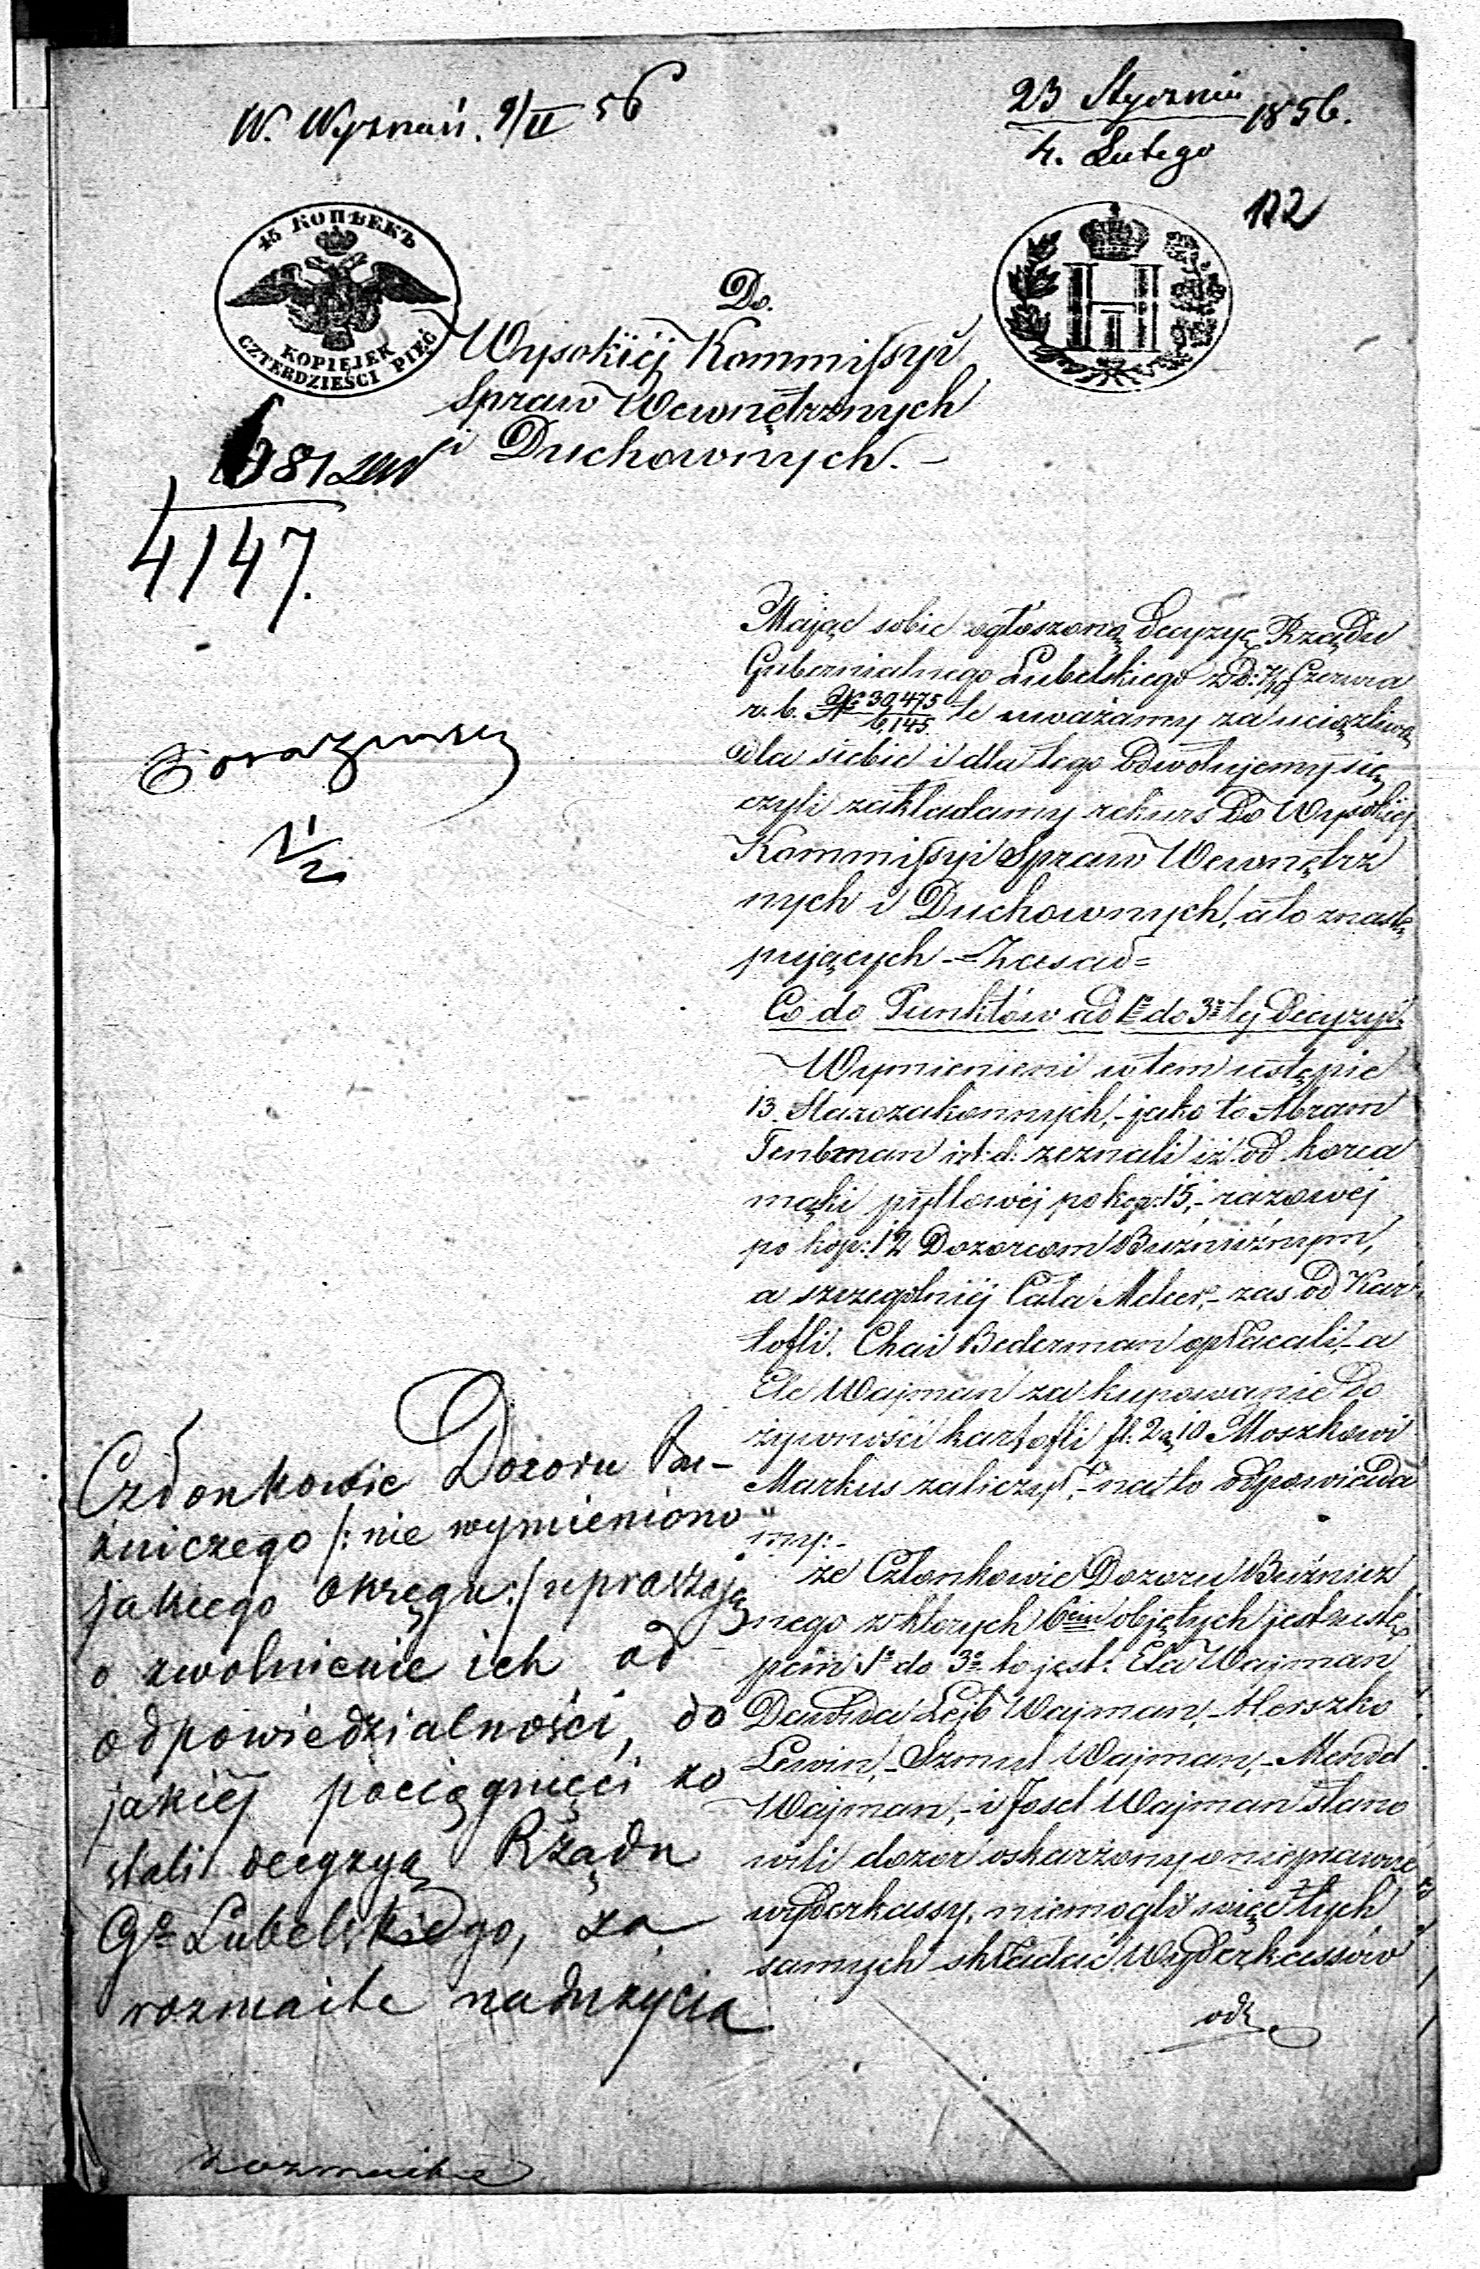 W. Wyznań. 9/II 56
23 Stycznia
4. Lutego
1856.
122
45 КОПѢЕКЪ
KOPIEJEK
CZTERDZIEŚCI PIĘĆ
Do.
Wysokiéj Kommissyi
Spraw Wewnętrznych
i Duchownych. –
4147.
1/2
Mając sobie ogłoszoną decyzyę Rządu
Gubernialnego Lubelskiego z d: 7/19 Czerwca
r. b. № 30,475/6,145. te uważamy za uciążliwą
dla siebie i dla tego odwołujemy się
czyli zakładamy rekurs do Wysokiej
Kommissyi Spraw Wewnętrz
nych i Duchownych, a to z nastę
pujących - Zasad =
Co do Punktów ad 1º do 3º téj Decyzyi.
Wymienieni w tem ustępie
13. Starozakonnych, - jako to Abram
Tenbman i t: d: zeznali iż od korca
mąki pytlowéj po kop: 15, - razowéj
po kop: 12 Dozorcom Bużniczным,
a szczególniéj Cała Melcer, - zas od Kar-
tofli. Chai Bederman opłacali, - a
Ele Wajman za kupowanie do
żywności kartofli fl: 2 g 10 Moszkowi
Markus zaliczył, - na to odpowiada
my: -
że Członkowie Dozoru Bużnicz
nego z których 6ciu objętych jest ustę
pem 1º do 3º to jest: Ela Wajman
Dawida Lejb Wajman, - Herszko
Lewin, - Szmul Wajman, - Mendel
Wajman, - i Josel Wajman stano
wili dozór oskarżony o nieprawne
wyderkassy, niemogli więc tych
samych składać Wyderkassów
od
Członkowie Dozoru Bu-
żniczego /: nie wymieniono
jakiego okręgu :/ upraszają
o zwolnienie ich od
odpowiedzialności, do
jakiéj pociągnięci zo
stali decyzyą Rządu
Gº Lubelskiego, za
rozmaite nadużycia
rozmaite